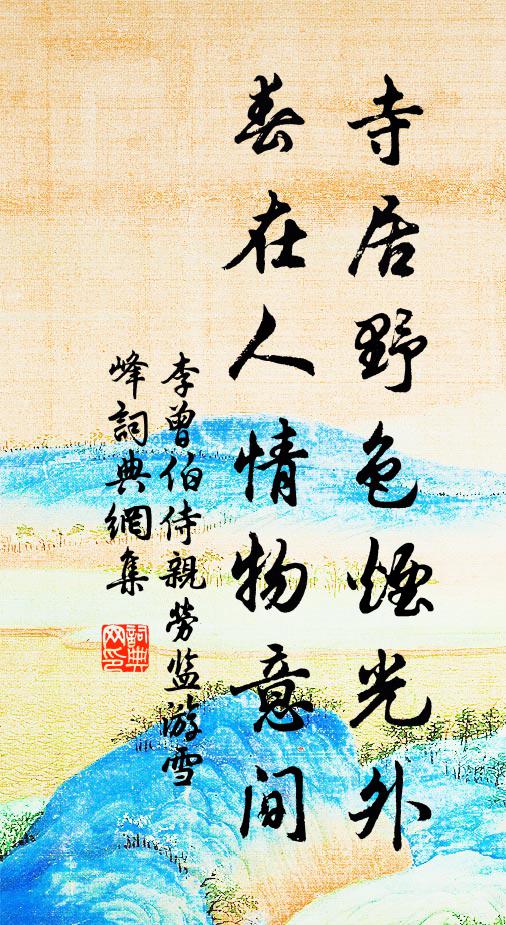 寺居野色煙光外
春在人情物意间
李曾伯侍親勞监游雪
峰詞典網集
詞典
网印